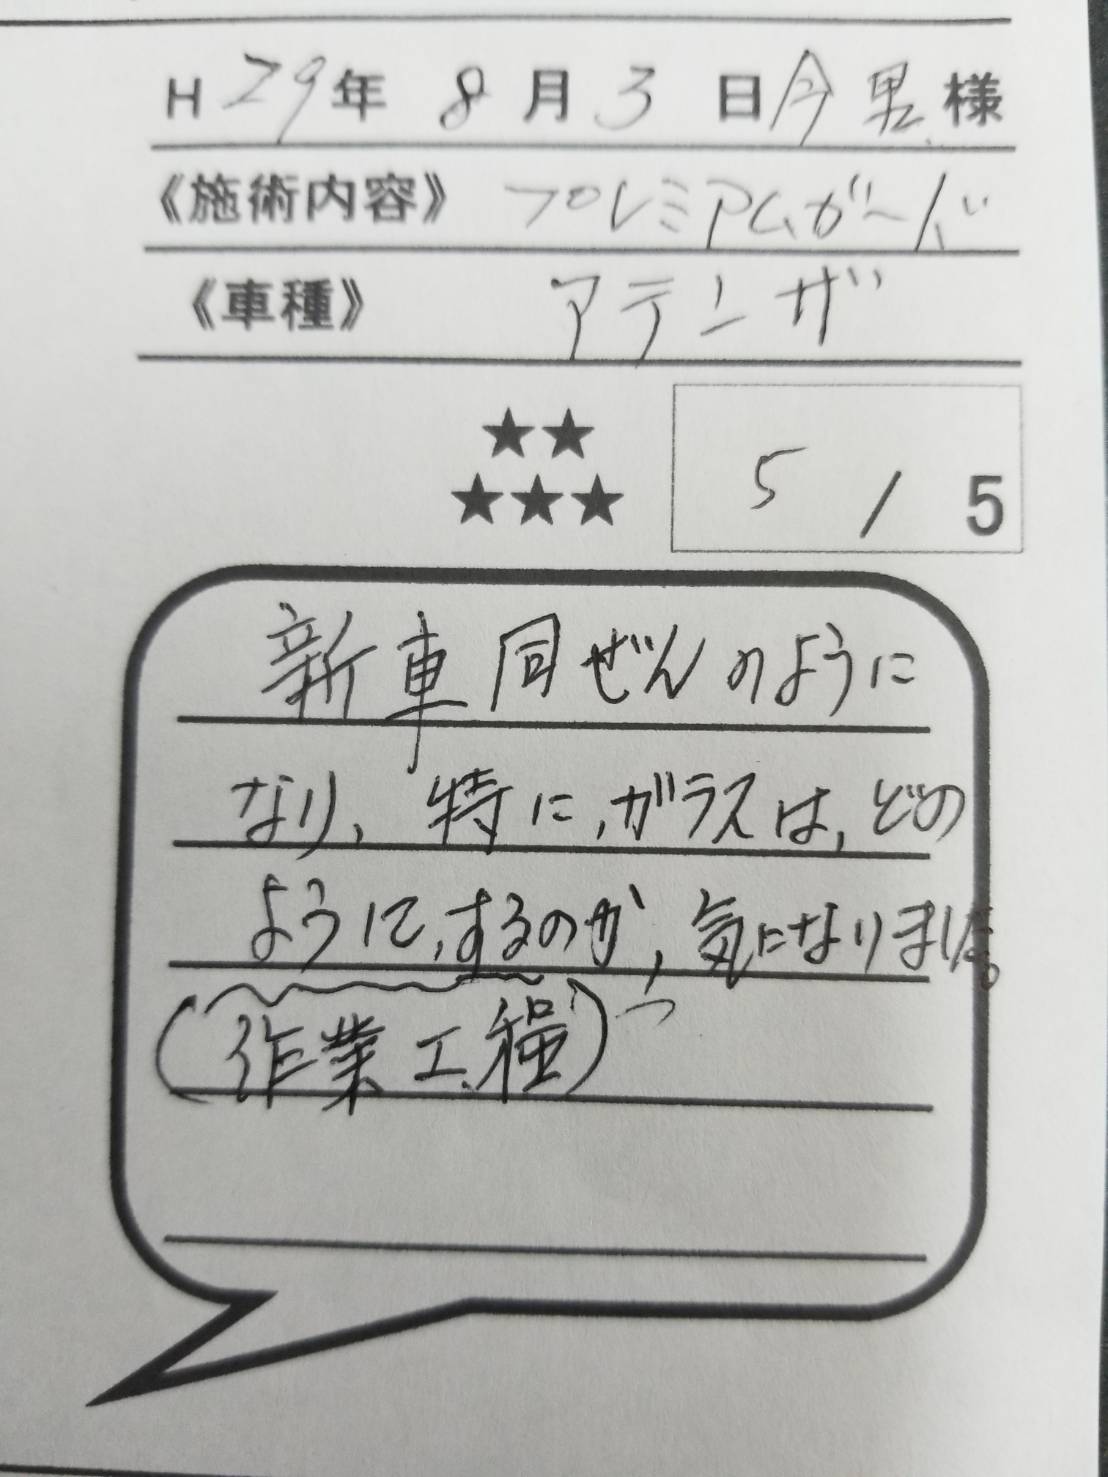 H 29年 8月3日 今男様
《施術内容》 プレミアムガード
《車種》 アテンザ
★★
★★★
5 / 5
新車同ぜんのように
なり、特に、ガラスは、どの
ように、するのか、気になりました。
(作業工程)